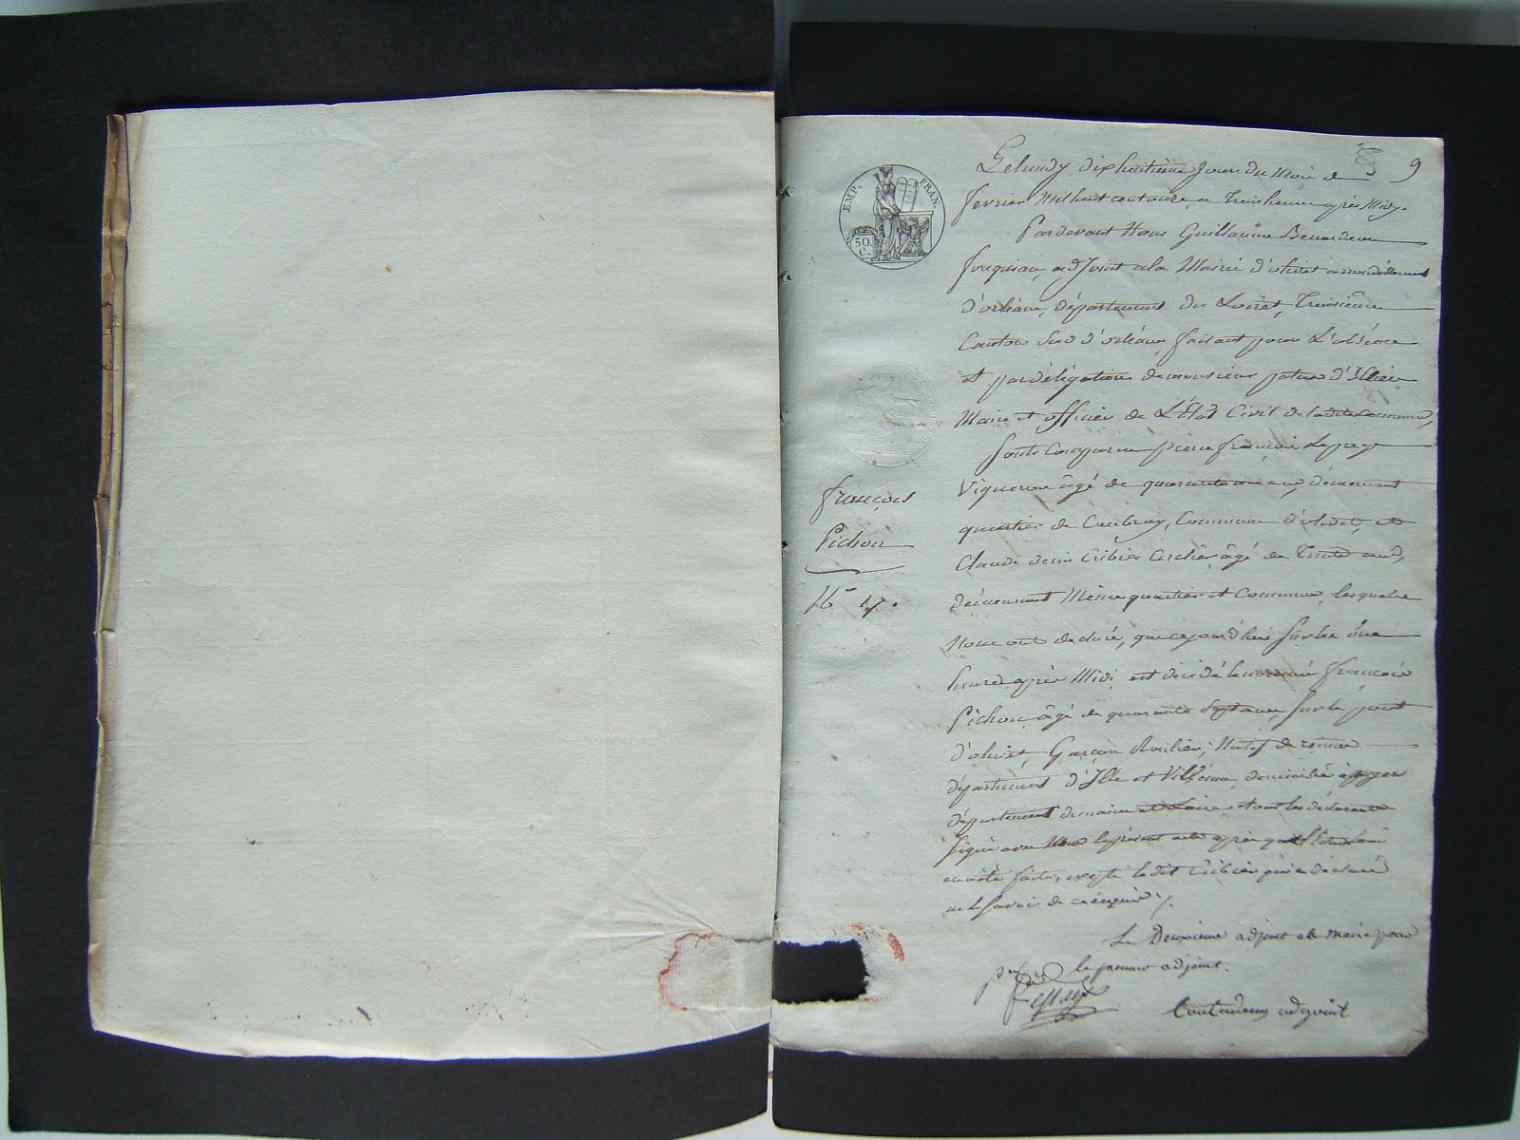 9
EMP. FRAN.
50 C.
Le lundy dixhuitième Jour du Mois de
fevrier Mil huit cent onze, a Trois heures après Midy.
Pardevant Nous Guillaume
adJoint a la Mairie d'olivet arrondissement
d'orléans, département du Loiret, Troisième
Canton Sud d'orléans, faisant pour L'absence
et par délégation de monsieur d'Illiers
Maire et officier de L'État Civil de la dite commune,
Sont Comparu pierre françois Lepage
Vigneron âgé de quarante ans, demeurant
quartier de Commune d'olivet, et
Claude Cribier Cerclier âgé de Trente ans,
demeurant Même quartier et Commune, lesquels
Nous ont déclaré, que cejourd'hui Sur les une
heures après Midi est décédé le nommé françois
Pichon âgé de quarante Sept ans, Sur le pont
d'olivet, Garçon Natif de renne
département d'Ille et Villaine, domicilié à
département de maine et Loire, et ont les déclarants
Signé avec Nous le présent acte après que Lecture leur
en a été faite, excepté le dit Cribier qui a déclaré
ne le savoir de ce enquis ./.
françois
Pichon
N° 17.
Le Deuxieme adjoint a la mairie pour
le premier adjoint.
adjoint